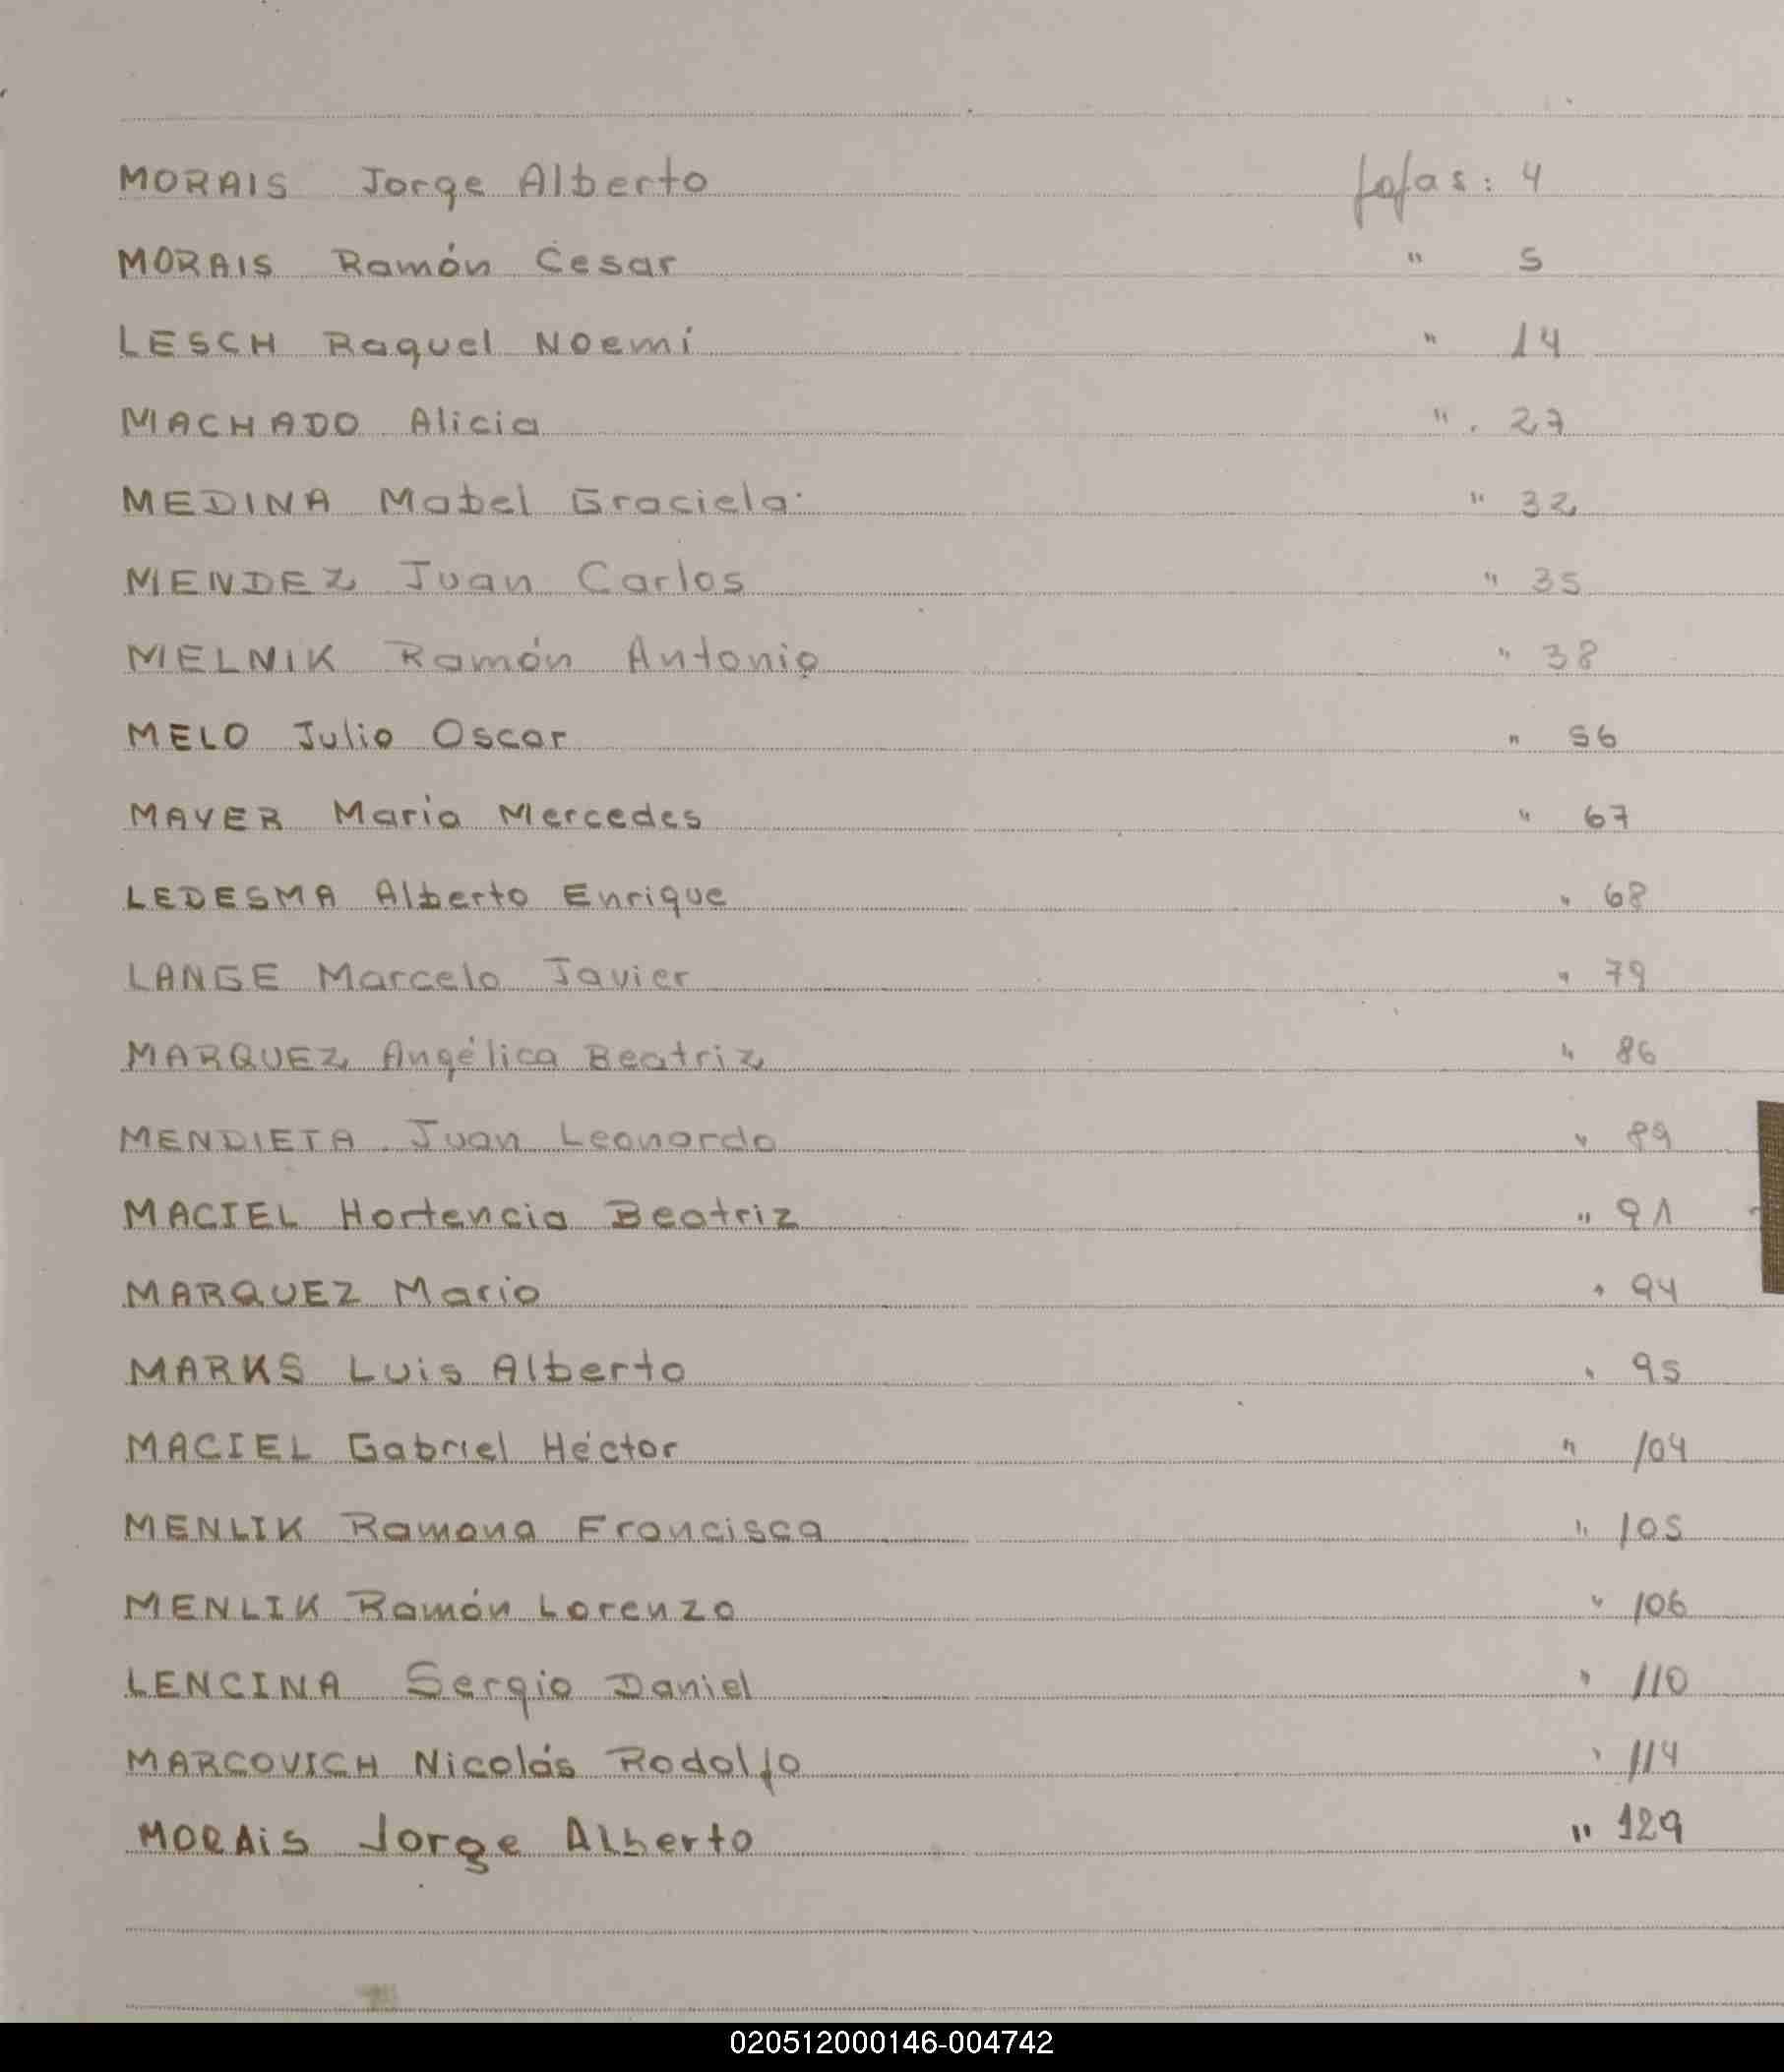 MORAIS Jorge Alberto fojas: 4
MORAIS Ramón Cesar " 5
LESCH Raquel Noemí " 14
MACHADO Alicia " 27
MEDINA Mabel Graciela " 32
MENDEZ Juan Carlos " 35
MELNIK Ramón Antonio " 38
MELO Julio Oscar " 56
MAYER Maria Mercedes " 67
LEDESMA Alberto Enrique " 68
LANGE Marcelo Javier " 79
MARQUEZ Angélica Beatriz " 86
MENDIETA Juan Leonardo " 89
MACIEL Hortencia Beatriz " 91
MARQUEZ Mario " 94
MARKS Luis Alberto " 95
MACIEL Gabriel Héctor " 104
MENLIK Ramona Francisca " 105
MENLIK Ramón Lorenzo " 106
LENCINA Sergio Daniel " 110
MARCOVICH Nicolás Rodolfo " 114
MORAiS Jorge Alberto " 129
020512000146-004742